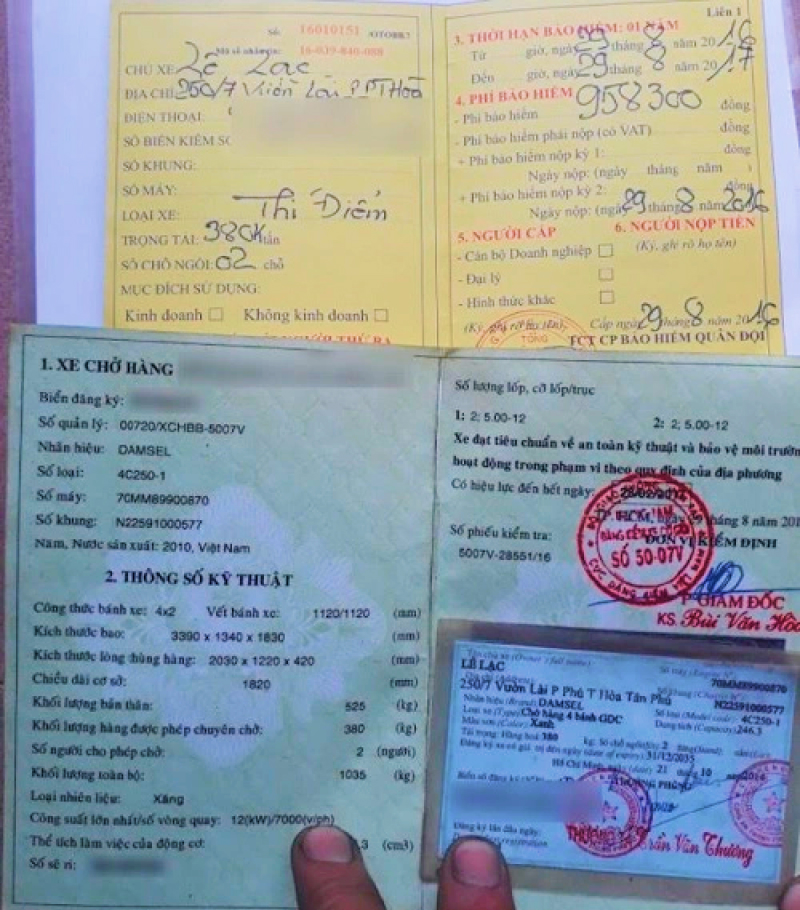 Số: 16010151 /OTOBB.7
Mã số nhân thọ: 16-039-840-008
CHỦ XE: Lê Lạc
ĐỊA CHỈ: 250/7 Vườn Lài P. PT Hòa
ĐIỆN THOẠI:
SỐ BIỂN KIỂM SO
SỐ KHUNG:
SỐ MÁY:
LOẠI XE: Thí Điểm
TRỌNG TẢI: 380K tấn
SỐ CHỖ NGỒI: 02 chỗ
MỤC ĐÍCH SỬ DỤNG:
Kinh doanh Không kinh doanh
Liên 1
3. THỜI HẠN BẢO HIỂM: 01 NĂM
Từ giờ, ngày 29 tháng 8 năm 2016
Đến giờ, ngày 29 tháng 8 năm 2017
4. PHÍ BẢO HIỂM
- Phí bảo hiểm 958300 đồng
- Phí bảo hiểm phải nộp (có VAT) đồng
+ Phí bảo hiểm nộp kỳ 1: đồng
Ngày nộp: (ngày tháng năm )
+ Phí bảo hiểm nộp kỳ 2: đồng
Ngày nộp: (ngày 29 tháng 8 năm 2016
5. NGƯỜI CẤP 6. NGƯỜI NỘP TIỀN
- Cán bộ Doanh nghiệp (Ký, ghi rõ họ tên)
- Đại lý
- Hình thức khác
(Ký, ghi rõ họ tên) Cấp ngày 29 tháng 8 năm 2016
TCT CP BẢO HIỂM QUÂN ĐỘI
1. XE CHỞ HÀNG
Biển đăng ký:
Số quản lý: 00720/XCHBB-5007V
Nhãn hiệu: DAMSEL
Số loại: 4C250-1
Số máy: 70MM89900870
Số khung: N22591000577
Năm, Nước sản xuất: 2010, Việt Nam
2. THÔNG SỐ KỸ THUẬT
Công thức bánh xe: 4x2 Vết bánh xe: 1120/1120 (mm)
Kích thước bao: 3390 x 1340 x 1830 (mm)
Kích thước lòng thùng hàng: 2030 x 1220 x 420 (mm)
Chiều dài cơ sở: 1820 (mm)
Khối lượng bản thân: 525 (kg)
Khối lượng hàng được phép chuyên chở: 380 (kg)
Số người cho phép chở: 2 (người)
Khối lượng toàn bộ: 1035 (kg)
Loại nhiên liệu: Xăng
Công suất lớn nhất/số vòng quay: 12(kW)/7000(v/ph)
Thể tích làm việc của động cơ: .3 (cm3)
Số sê ri:
Số lượng lốp, cỡ lốp/trục
1: 2; 5.00-12 2: 2; 5.00-12
Xe đạt tiêu chuẩn về an toàn kỹ thuật và bảo vệ môi trườn
hoạt động trong phạm vi theo quy định của địa phương
Có hiệu lực đến hết ngày:
TP. HCM, ngày 29 tháng 8 năm 201
Số phiếu kiểm tra: ĐƠN VỊ KIỂM ĐỊNH
5007V-28551/16
SỐ 50-07V
CỤC ĐĂNG KIỂM VIỆT NAM
P. GIÁM ĐỐC
KS. Bùi Văn Hò
Tên chủ xe (Owner's full name):
LÊ LẠC
70MM89900870
250/7 Vườn Lài P Phú T Hòa Tân Phú
N22591000577
Nhãn hiệu (Brand): DAMSEL Số loại (Model code): 4C250-1
Loại xe (Type): Chở hàng 4 bánh GDC Dung tích (Capacity): 246.3
Màu sơn (Color): Xanh
Tải trọng: Hàng hoá 380 kg; Số chỗ ngồi: 2
Đăng ký xe có giá trị đến ngày (date of expiry) 31/12/2035
Hồ Chí Minh, ngày (date) 21 tháng 10
Biển số đăng ký
TRƯỞNG PHÒNG
Đăng ký lần đầu ngày:
Trần Văn Thương